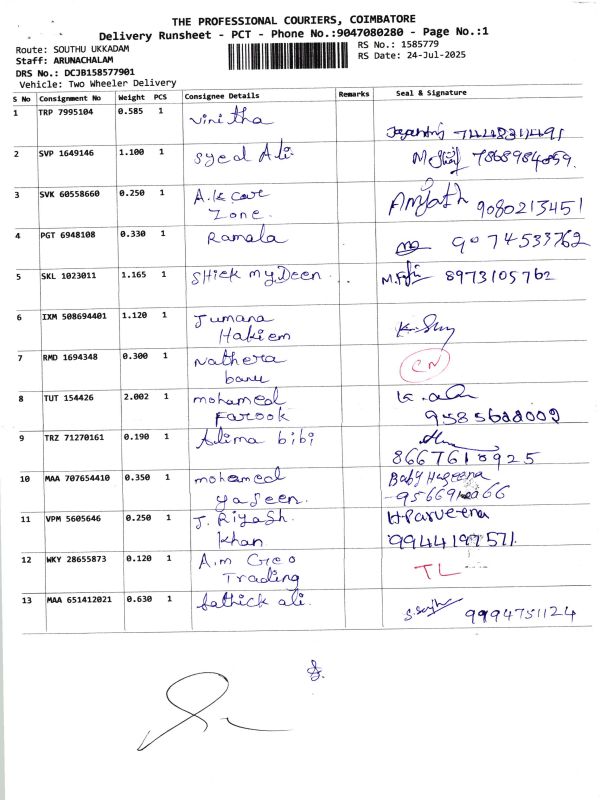 THE PROFESSIONAL COURIERS, COIMBATORE
Delivery Runsheet - PCT - Phone No.:9047080280 - Page No.:1
Route: SOUTHU UKKADAM
RS No.: 1585779
Staff: ARUNACHALAM
RS Date: 24-Jul-2025
DRS No.: DCJB158577901
Vehicle: Two Wheeler Delivery
S No Consignment No Weight PCS Consignee Details Remarks Seal & Signature
1 TRP 7995104 0.585 1 Vinitha
2 SVP 1649146 1.100 1 Syed Ali 7868984859.
3 SVK 60558660 0.250 1 A.k care Amjath 9080213451
Zone.
4 PGT 6948108 0.330 1 Ramala 9074533762
5 SKL 1023011 1.165 1 SHiek myDeen 8973105762
6 IXM 508694401 1.120 1 Jumana
Hakiem
7 RMD 1694348 0.300 1 Nathera CN
banu
8 TUT 154426 2.002 1 mohamed
Farook 9585688009
9 TRZ 71270161 0.190 1 Alima bibi
8667610925
10 MAA 707654410 0.350 1 mohamed Baby Hageena
yaseen.
11 VPM 5605646 0.250 1 J. Riyash. H Parveena
Khan 9944197571.
12 WKY 28655873 0.120 1 A.m Geo TL
Trading
13 MAA 651412021 0.630 1 Sathick ali. 9994751124